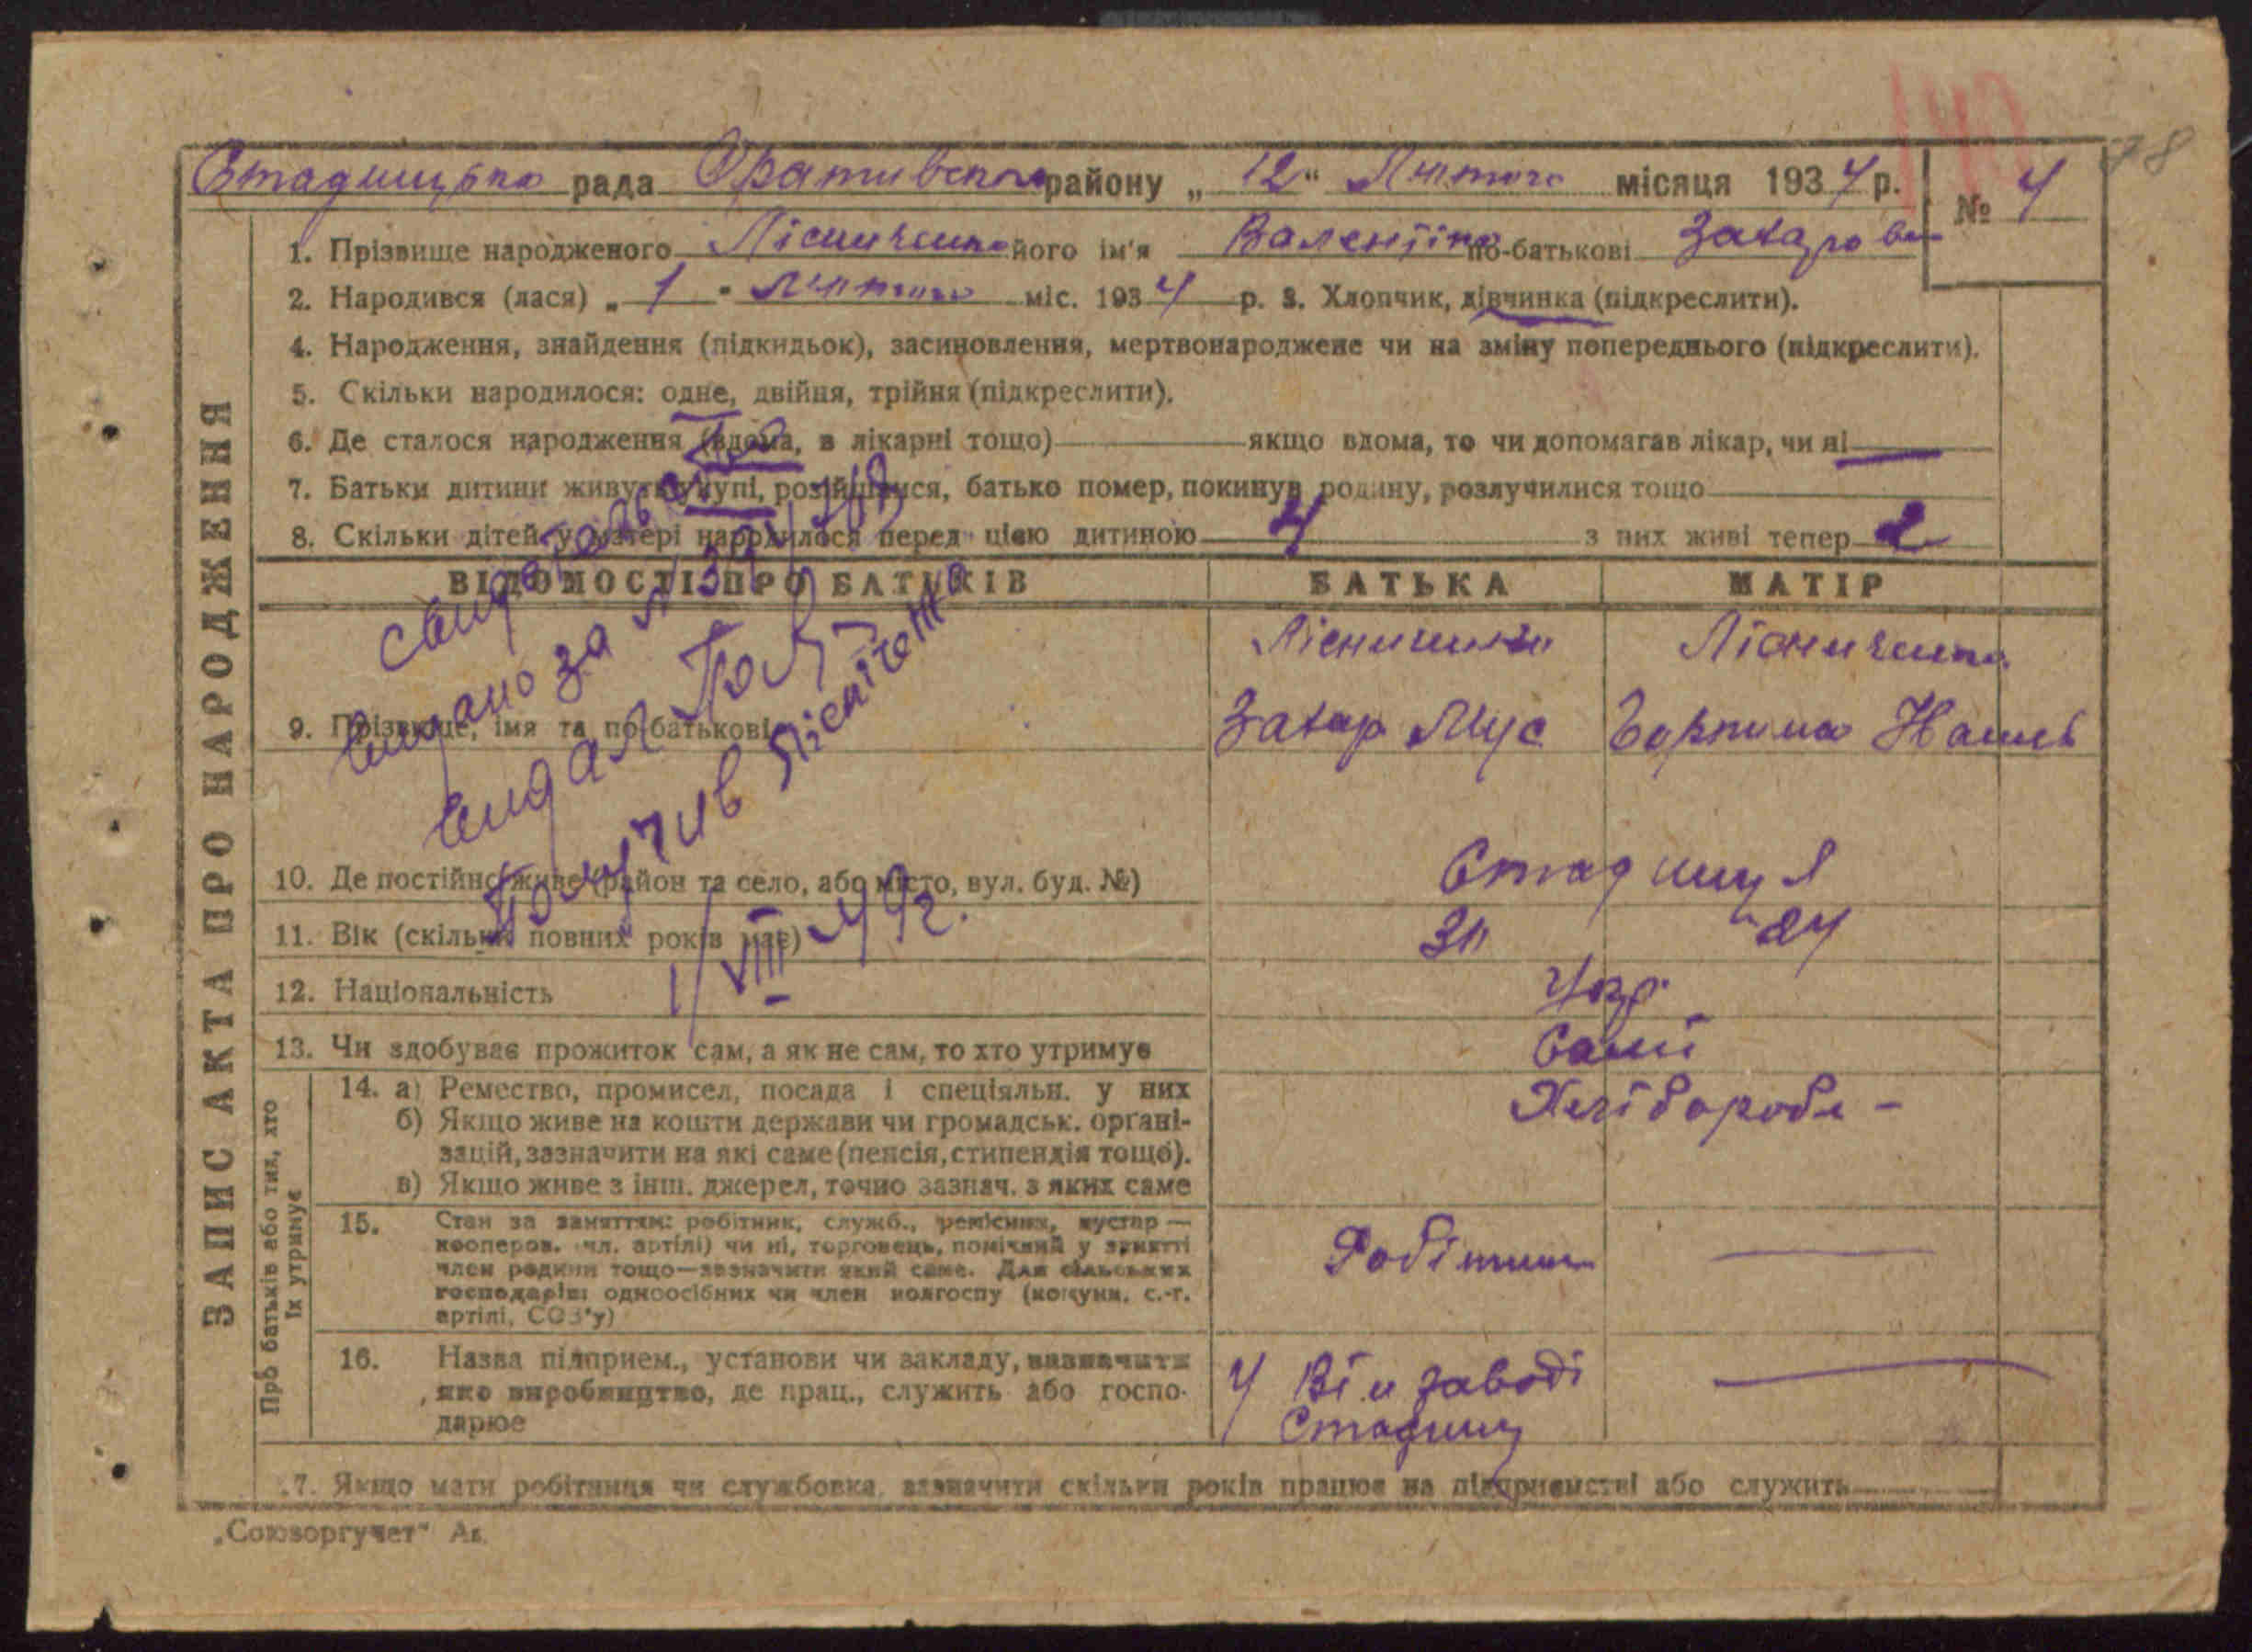 78
Стадницька рада Оратівського району „12" Лютого місяця 1934 р. № 4
1. Прізвище народженого Лісниченко його ім'я Валентіна по-батькові Захаров
2. Народився (лася) „1" лютого міс. 1934 р. 3. Хлопчик, дівчинка (підкреслити).
4. Народження, знайдення (підкидьок), засиновлення, мертвонароджене чи на зміну попереднього (підкреслити).
5. Скільки народилося: одне, двійня, трійня (підкреслити).
6. Де сталося народження (вдома, в лікарні тощо) якщо вдома, то чи допомагав лікар, чи ні
7. Батьки дитини живуть укупі, розійшлися, батько помер, покинув родину, розлучилися тощо
8. Скільки дітей у матері народилося перед цією дитиною 4 з них живі тепер 2
ВІДОМОСТІ ПРО БАТЬКІВ БАТЬКА МАТІР
Лісниченко Лісниченко
9. Прізвище, імя та по батькові Захар Мус Горпина
10. Де постійно живе (район та село, або місто, вул. буд. №) Стадниця
11. Вік (скільки повних років має) 24
12. Національність Укр.
13. Чи здобуває прожиток сам, а як не сам, то хто утримує Самі
14. а) Ремество, промисел, посада і спеціяльн. у них Хлібороби -
б) Якщо живе на кошти держави чи громадськ. органі-
зацій, зазначити на які саме (пенсія, стипендія тощо).
в) Якщо живе з інш. джерел, точно зазнач. з яких саме
15. Стан за заняттям: робітник, служб., ремісник, кустар —
кооперов. чл. артілі) чи ні, торговець, помічний у занятті
член родини тощо—зазначити який саме. Для сільських
господарів: одноосібних чи член колгоспу (комуни, с.-г.
артілі, СОЗ'у)
Робітник
16. Назва підприєм., установи чи закладу, зазначити
яке виробництво, де прац., служить або госпо-
дарює
У Він заводі
Стадниц
17. Якщо мати робітниця чи службовка, зазначити скільки років працює на підприємстві або служить
ЗАПИС АКТА ПРО НАРОДЖЕННЯ
Про батьків або тих, хто
їх утримує
видано за №
видал
Получив Лісніченко
1/VIII 49 г.
„Союзоргучет"